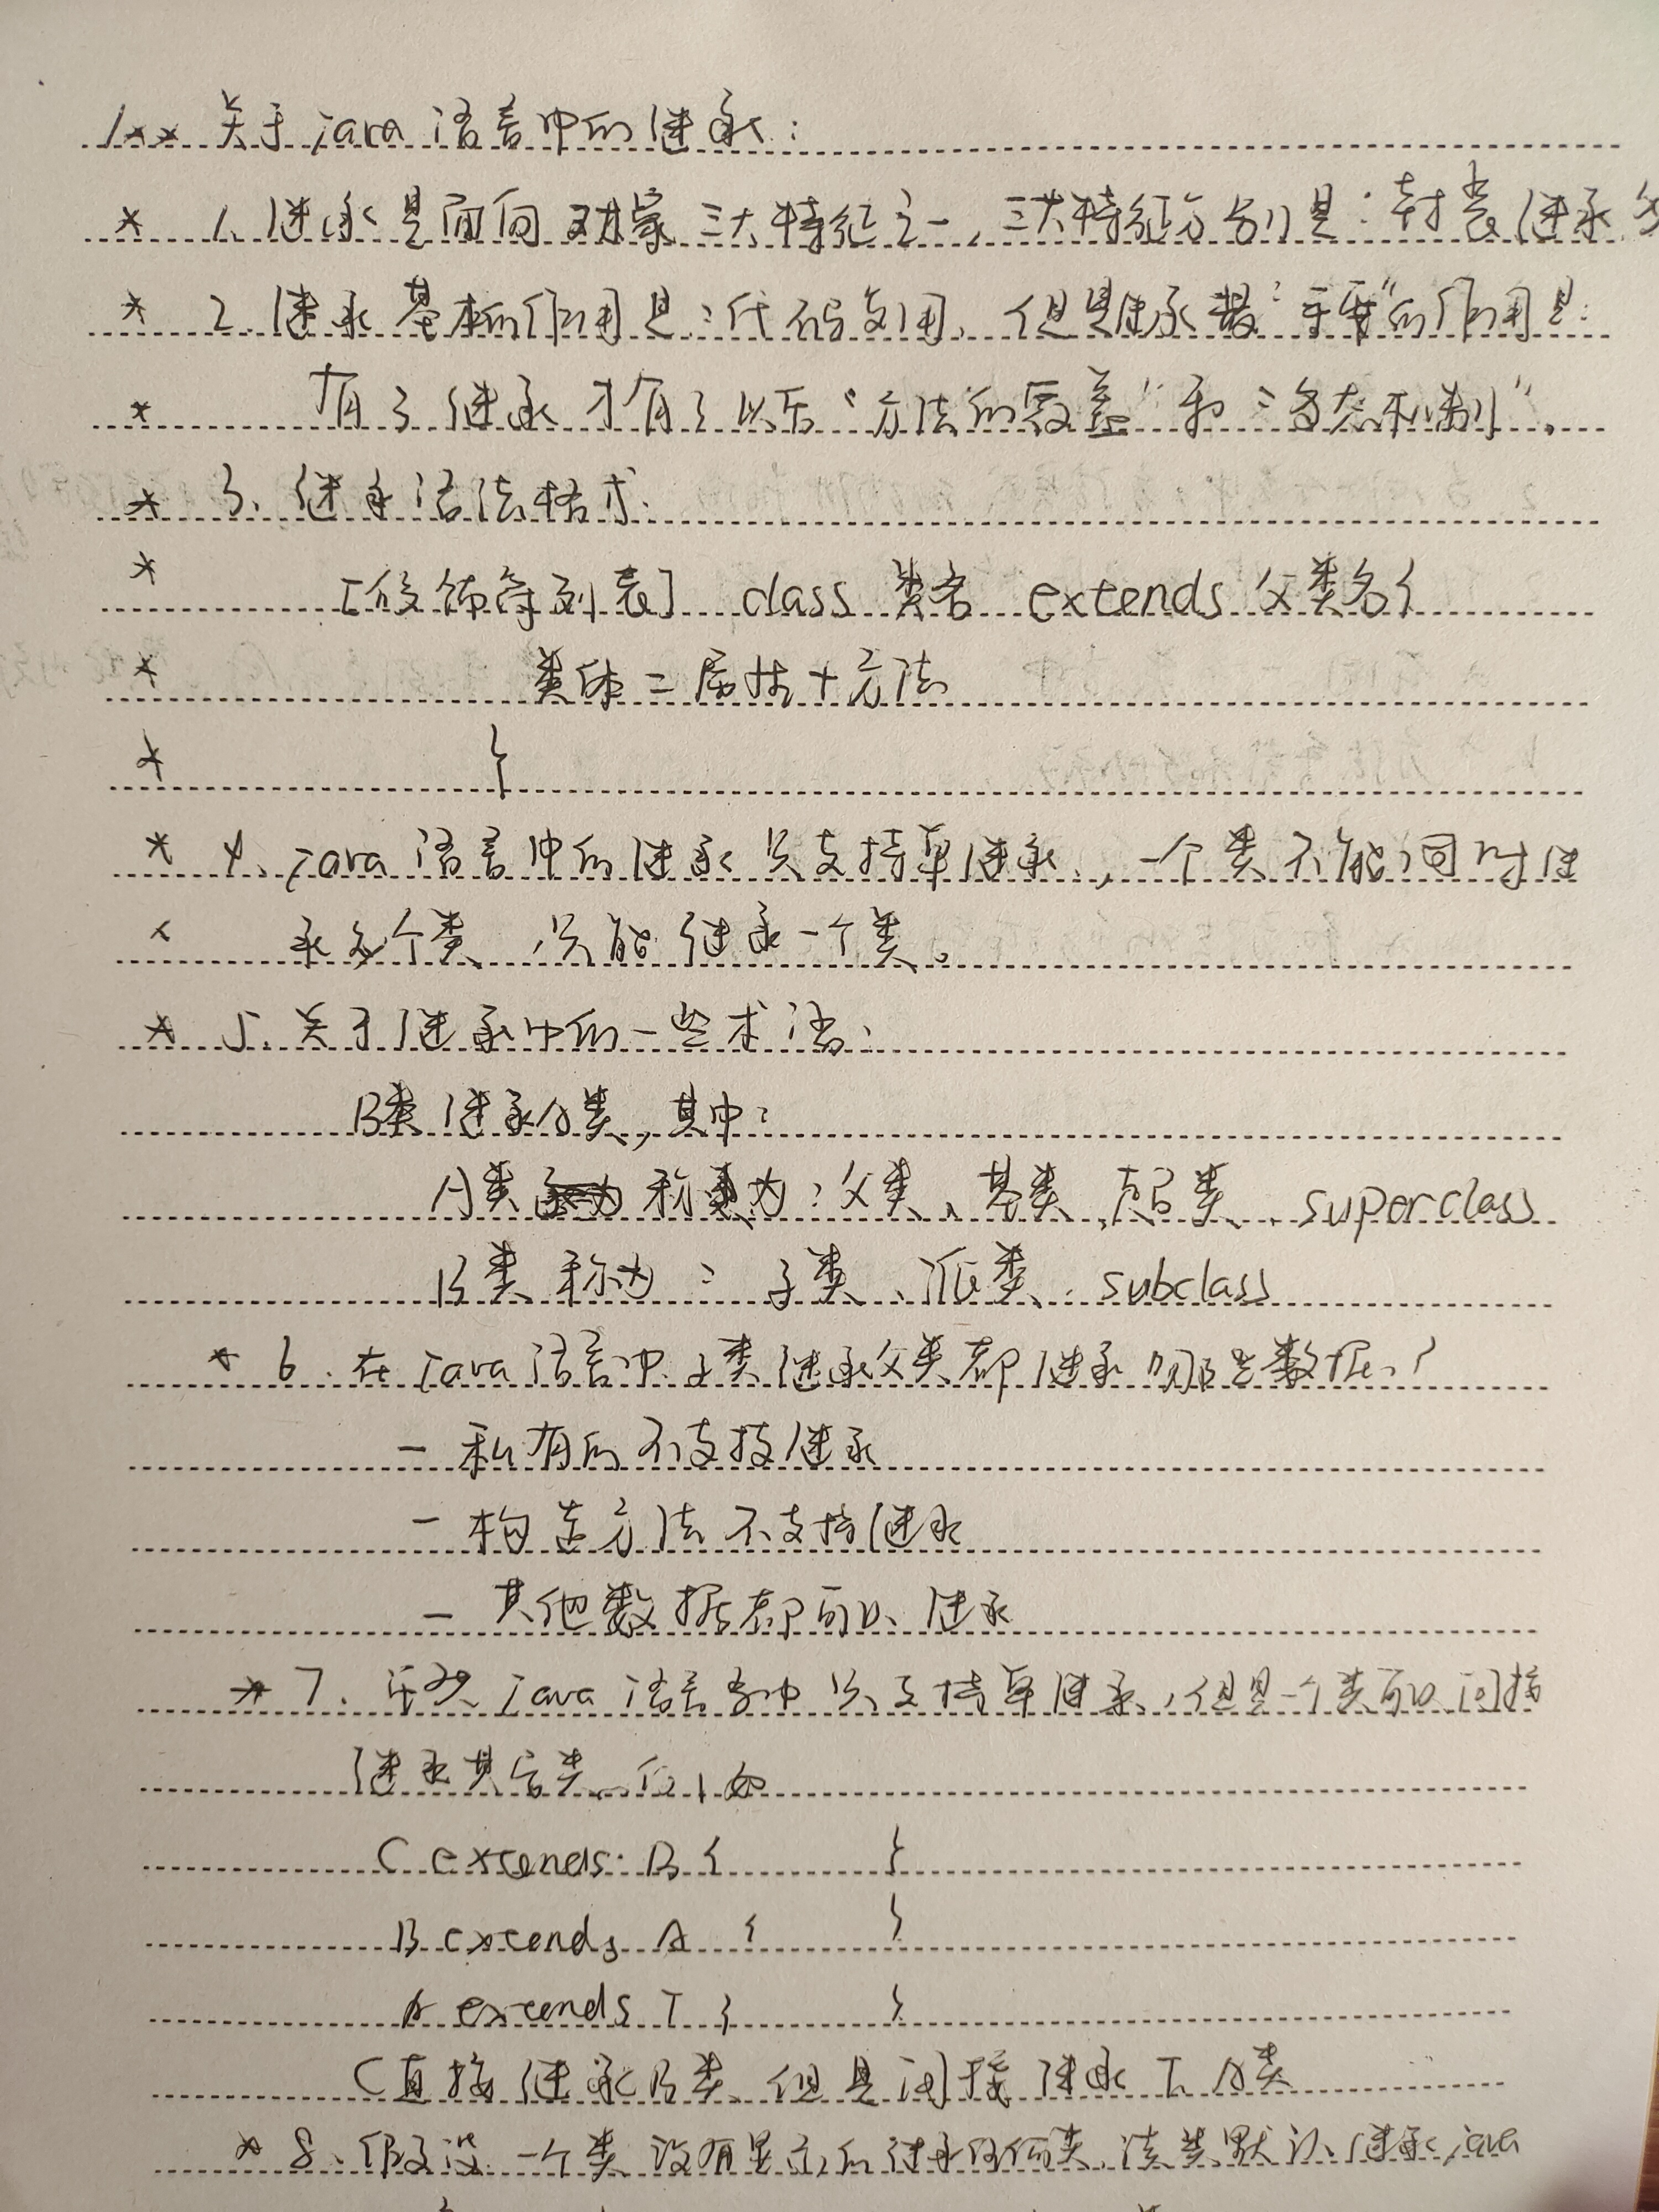 /** 关于java语言中的继承:
* 1、继承是面向对象三大特征之一,三大特征分别是:封装、继承、多
* 2、继承基本的作用是:代码复用,但是继承最"重要"的作用是:
* 有了继承才有了以后"方法的覆盖"和"多态机制"。
* 3、继承语法格式:
* [修饰符列表] class 类名 extends 父类名{
* 类体=属性+方法
* }
* 4、java语言中的继承只支持单继承,一个类不能同时继
* 承多个类,只能继承一个类。
* 5、关于继承中的一些术语:
B类继承A类,其中:
A类称为:父类、基类、超类、superclass
B类称为:子类、派类、subclass
* 6、在java语言中子类继承父类都继承哪些数据?
- 私有的不支持继承
- 构造方法不支持继承
- 其他数据都可以继承
* 7、虽然java语言当中只支持单继承,但是一个类可以间接
继承其它类,例如
C extends B { }
B extends A { }
A extends T { }
C直接继承B类,但是间接继承T、A类
* 8、假设一个类没有显示的继承任何类,该类默认继承java